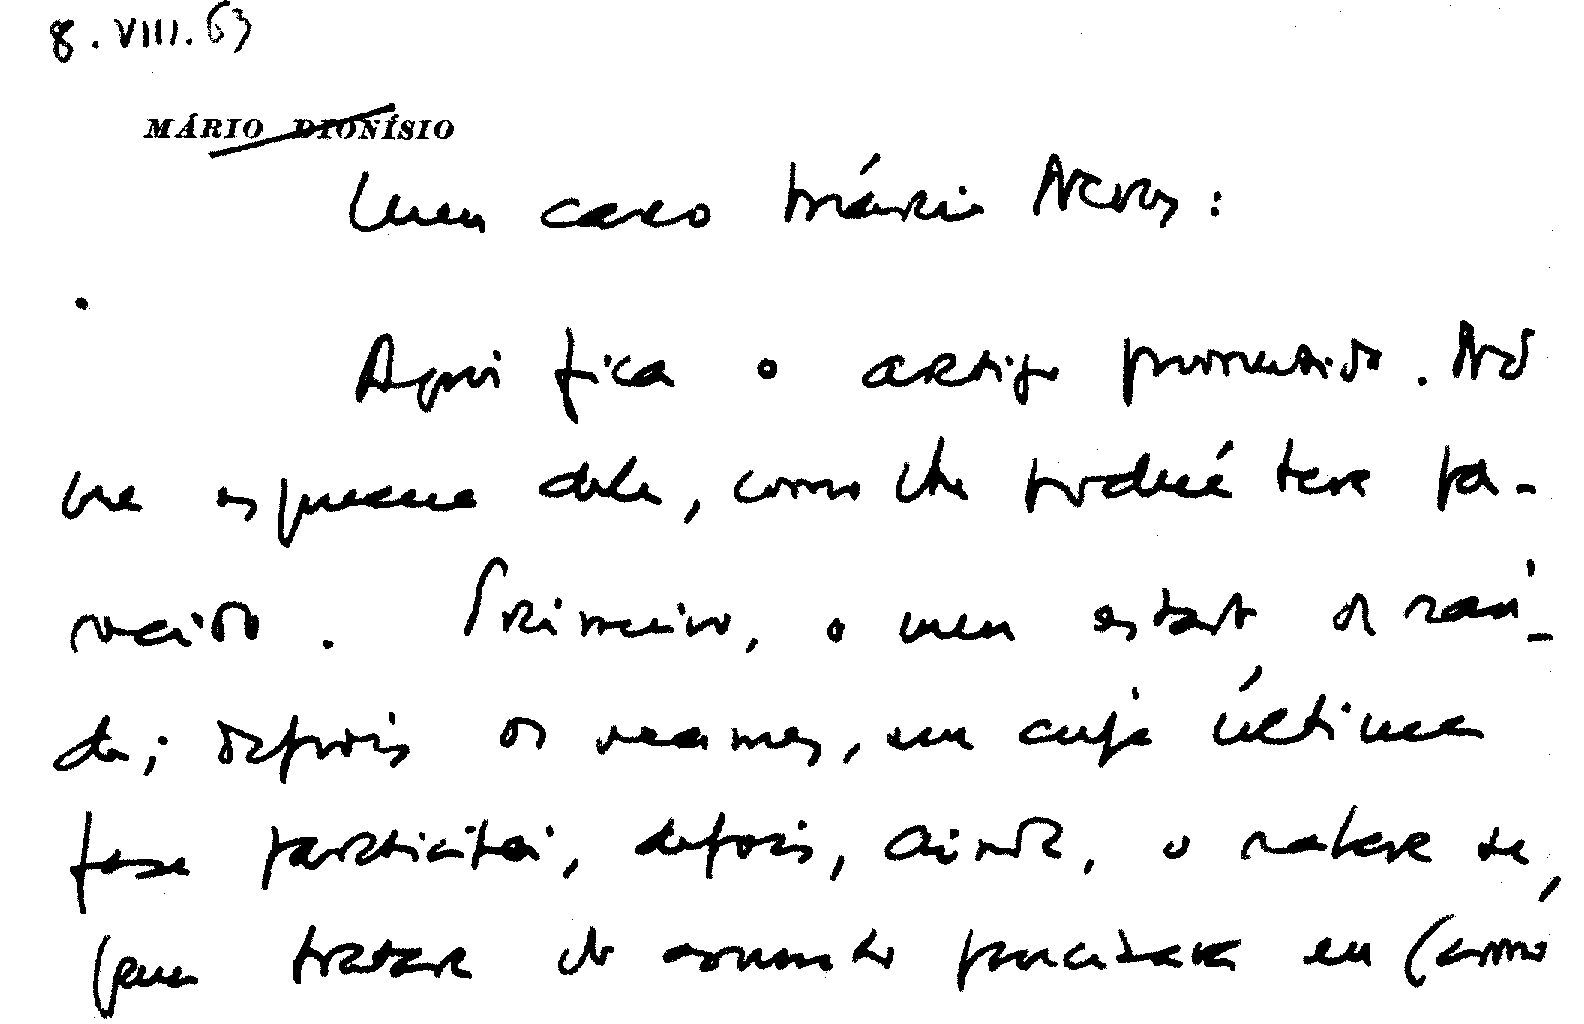 8.VIII.63
MÁRIO DIONÍSIO
Meu caro Mário Neves:
Aqui fica o artigo prometido. Não
me esqueci dele, como lhe poderá ter pa-
recido. Primeiro, o meu estado de saú-
de; depois os exames, em cuja última
fase participei, depois, ainda, o saber se,
para tratar do assunto precisava eu (como